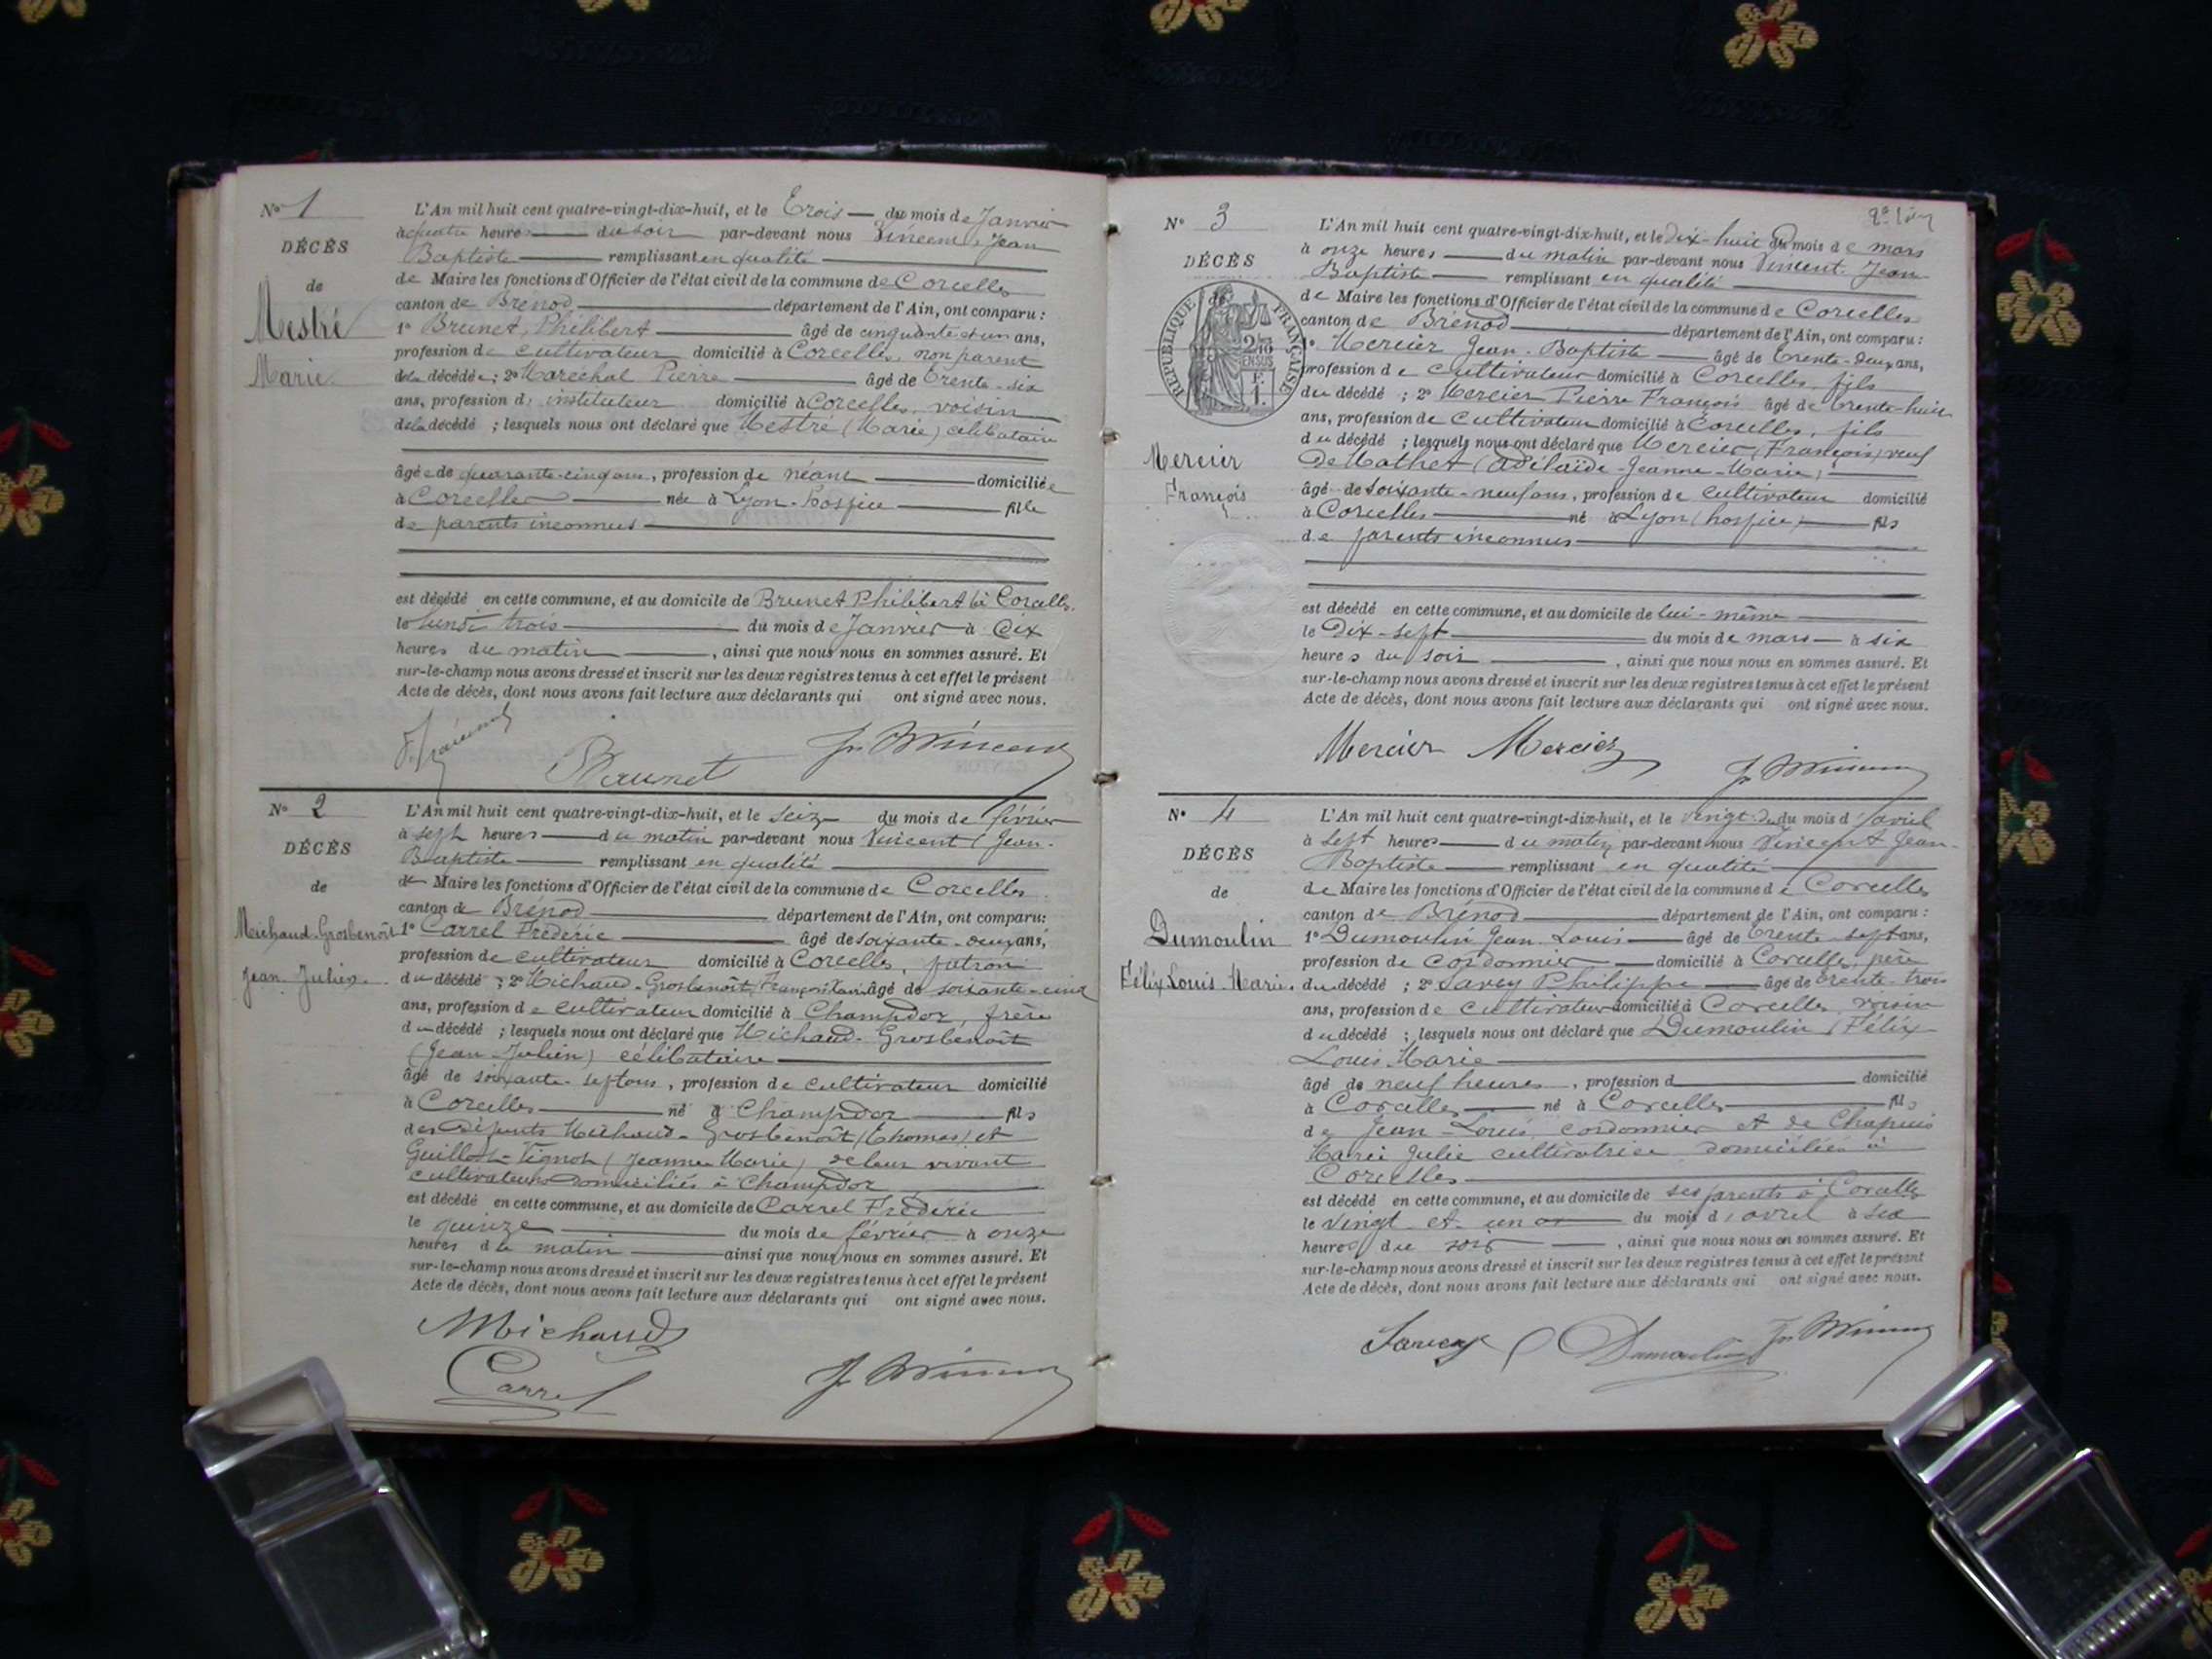 N° 1
DÉCÈS
de
Mestré
Marie
L'An mil huit cent quatre-vingt-dix-huit, et le Trois du mois de Janvier
à quatre heures du soir par-devant nous Vincent, Jean
Baptiste remplissant en qualité
de Maire les fonctions d'Officier de l'état civil de la commune de Corcelles
canton de Brénod département de l'Ain, ont comparu :
1° Brunet, Philibert âgé de cinquante et un ans,
profession de cultivateur domicilié à Corcelles, non parent
de la décédée ; 2° Maréchal Pierre âgé de trente-six
ans, profession d' instituteur domicilié à Corcelles, voisin
de la décédé ; lesquels nous ont déclaré que Mestré (Marie) célibataire
âgée de quarante-cinq ans, profession de néant domiciliée
à Corcelles née à Lyon-hospice fille
de parents inconnus
est décédé en cette commune, et au domicile de Brunet Philibert à Corcelles
le lundi trois du mois de Janvier à dix
heures du matin, ainsi que nous nous en sommes assuré. Et
sur-le-champ nous avons dressé et inscrit sur les deux registres tenus à cet effet le présent
Acte de décès, dont nous avons fait lecture aux déclarants qui ont signé avec nous.
Brunet Jn Bte Vincent
N° 2
DÉCÈS
de
Michaud-Grosbenoît
Jean Julien
L'An mil huit cent quatre-vingt-dix-huit, et le seize du mois de février
à sept heures du matin par-devant nous Vincent (Jean-
Baptiste remplissant en qualité
de Maire les fonctions d'Officier de l'état civil de la commune de Corcelles
canton de Brénod département de l'Ain, ont comparu :
1° Carrel Frédéric âgé de soixante-deux ans,
profession de cultivateur domicilié à Corcelles, patron
du décédé ; 2° Michaud-Grosbenoît, François âgé de soixante-cinq
ans, profession de cultivateur domicilié à Champdor, frère
du décédé ; lesquels nous ont déclaré que Michaud-Grosbenoît
(Jean-Julien) célibataire
âgé de soixante-sept ans, profession de cultivateur domicilié
à Corcelles né à Champdor fils
des défunts Michaud-Grosbenoît (Thomas) et
Guillot-Vignot (Jeanne Marie) de leur vivant
cultivateurs domiciliés à Champdor
est décédé en cette commune, et au domicile de Carrel Frédéric
le quinze du mois de février à onze
heures du matin ainsi que nous nous en sommes assuré. Et
sur-le-champ nous avons dressé et inscrit sur les deux registres tenus à cet effet le présent
Acte de décès, dont nous avons fait lecture aux déclarants qui ont signé avec nous.
Michaud
Carrel Jn Bte Vincent
N° 3
DÉCÈS
de
RÉPUBLIQUE FRANÇAISE
Mercier
François
L'An mil huit cent quatre-vingt-dix-huit, et le dix-huit du mois de mars
à onze heures du matin par-devant nous Vincent Jean
Baptiste remplissant en qualité
de Maire les fonctions d'Officier de l'état civil de la commune de Corcelles
canton de Brénod département de l'Ain, ont comparu :
1° Mercier Jean-Baptiste âgé de trente-deux ans,
profession de cultivateur domicilié à Corcelles fils
du décédé ; 2° Mercier Pierre François âgé de trente-huit
ans, profession de cultivateur domicilié à Corcelles, fils
du décédé ; lesquels nous ont déclaré que Mercier (François) veuf
de Mathet (Adélaïde-Jeanne-Marie)
âgé de soixante-neuf ans, profession de cultivateur domicilié
à Corcelles né à Lyon (hospice) fils
de parents inconnus
est décédé en cette commune, et au domicile de lui-même
le dix-sept du mois de mars à six
heures du soir, ainsi que nous nous en sommes assuré. Et
sur-le-champ nous avons dressé et inscrit sur les deux registres tenus à cet effet le présent
Acte de décès, dont nous avons fait lecture aux déclarants qui ont signé avec nous.
Mercier Mercier Jn Bte Vincent
N° 4
DÉCÈS
de
Dumoulin
Félix Louis Marie
L'An mil huit cent quatre-vingt-dix-huit, et le vingt-deux du mois d'avril
à sept heures du matin par-devant nous Vincent Jean-
Baptiste remplissant en qualité
de Maire les fonctions d'Officier de l'état civil de la commune de Corcelles
canton de Brénod département de l'Ain, ont comparu :
1° Dumoulin Jean Louis âgé de trente-sept ans,
profession de cordonnier domicilié à Corcelles, père
du décédé ; 2° Savey Philippe âgé de trente-trois
ans, profession de cultivateur domicilié à Corcelles voisin
du décédé ; lesquels nous ont déclaré que Dumoulin (Félix
Louis Marie
âgé de neuf heures, profession d domicilié
à Corcelles né à Corcelles fils
de Jean-Louis cordonnier et de Chapuis
Marie Julie cultivatrice domiciliés à
Corcelles
est décédé en cette commune, et au domicile de ses parents à Corcelles
le vingt et un du mois d'avril à six
heures du soir, ainsi que nous nous en sommes assuré. Et
sur-le-champ nous avons dressé et inscrit sur les deux registres tenus à cet effet le présent
Acte de décès, dont nous avons fait lecture aux déclarants qui ont signé avec nous.
Savey Dumoulin Jn Bte Vincent